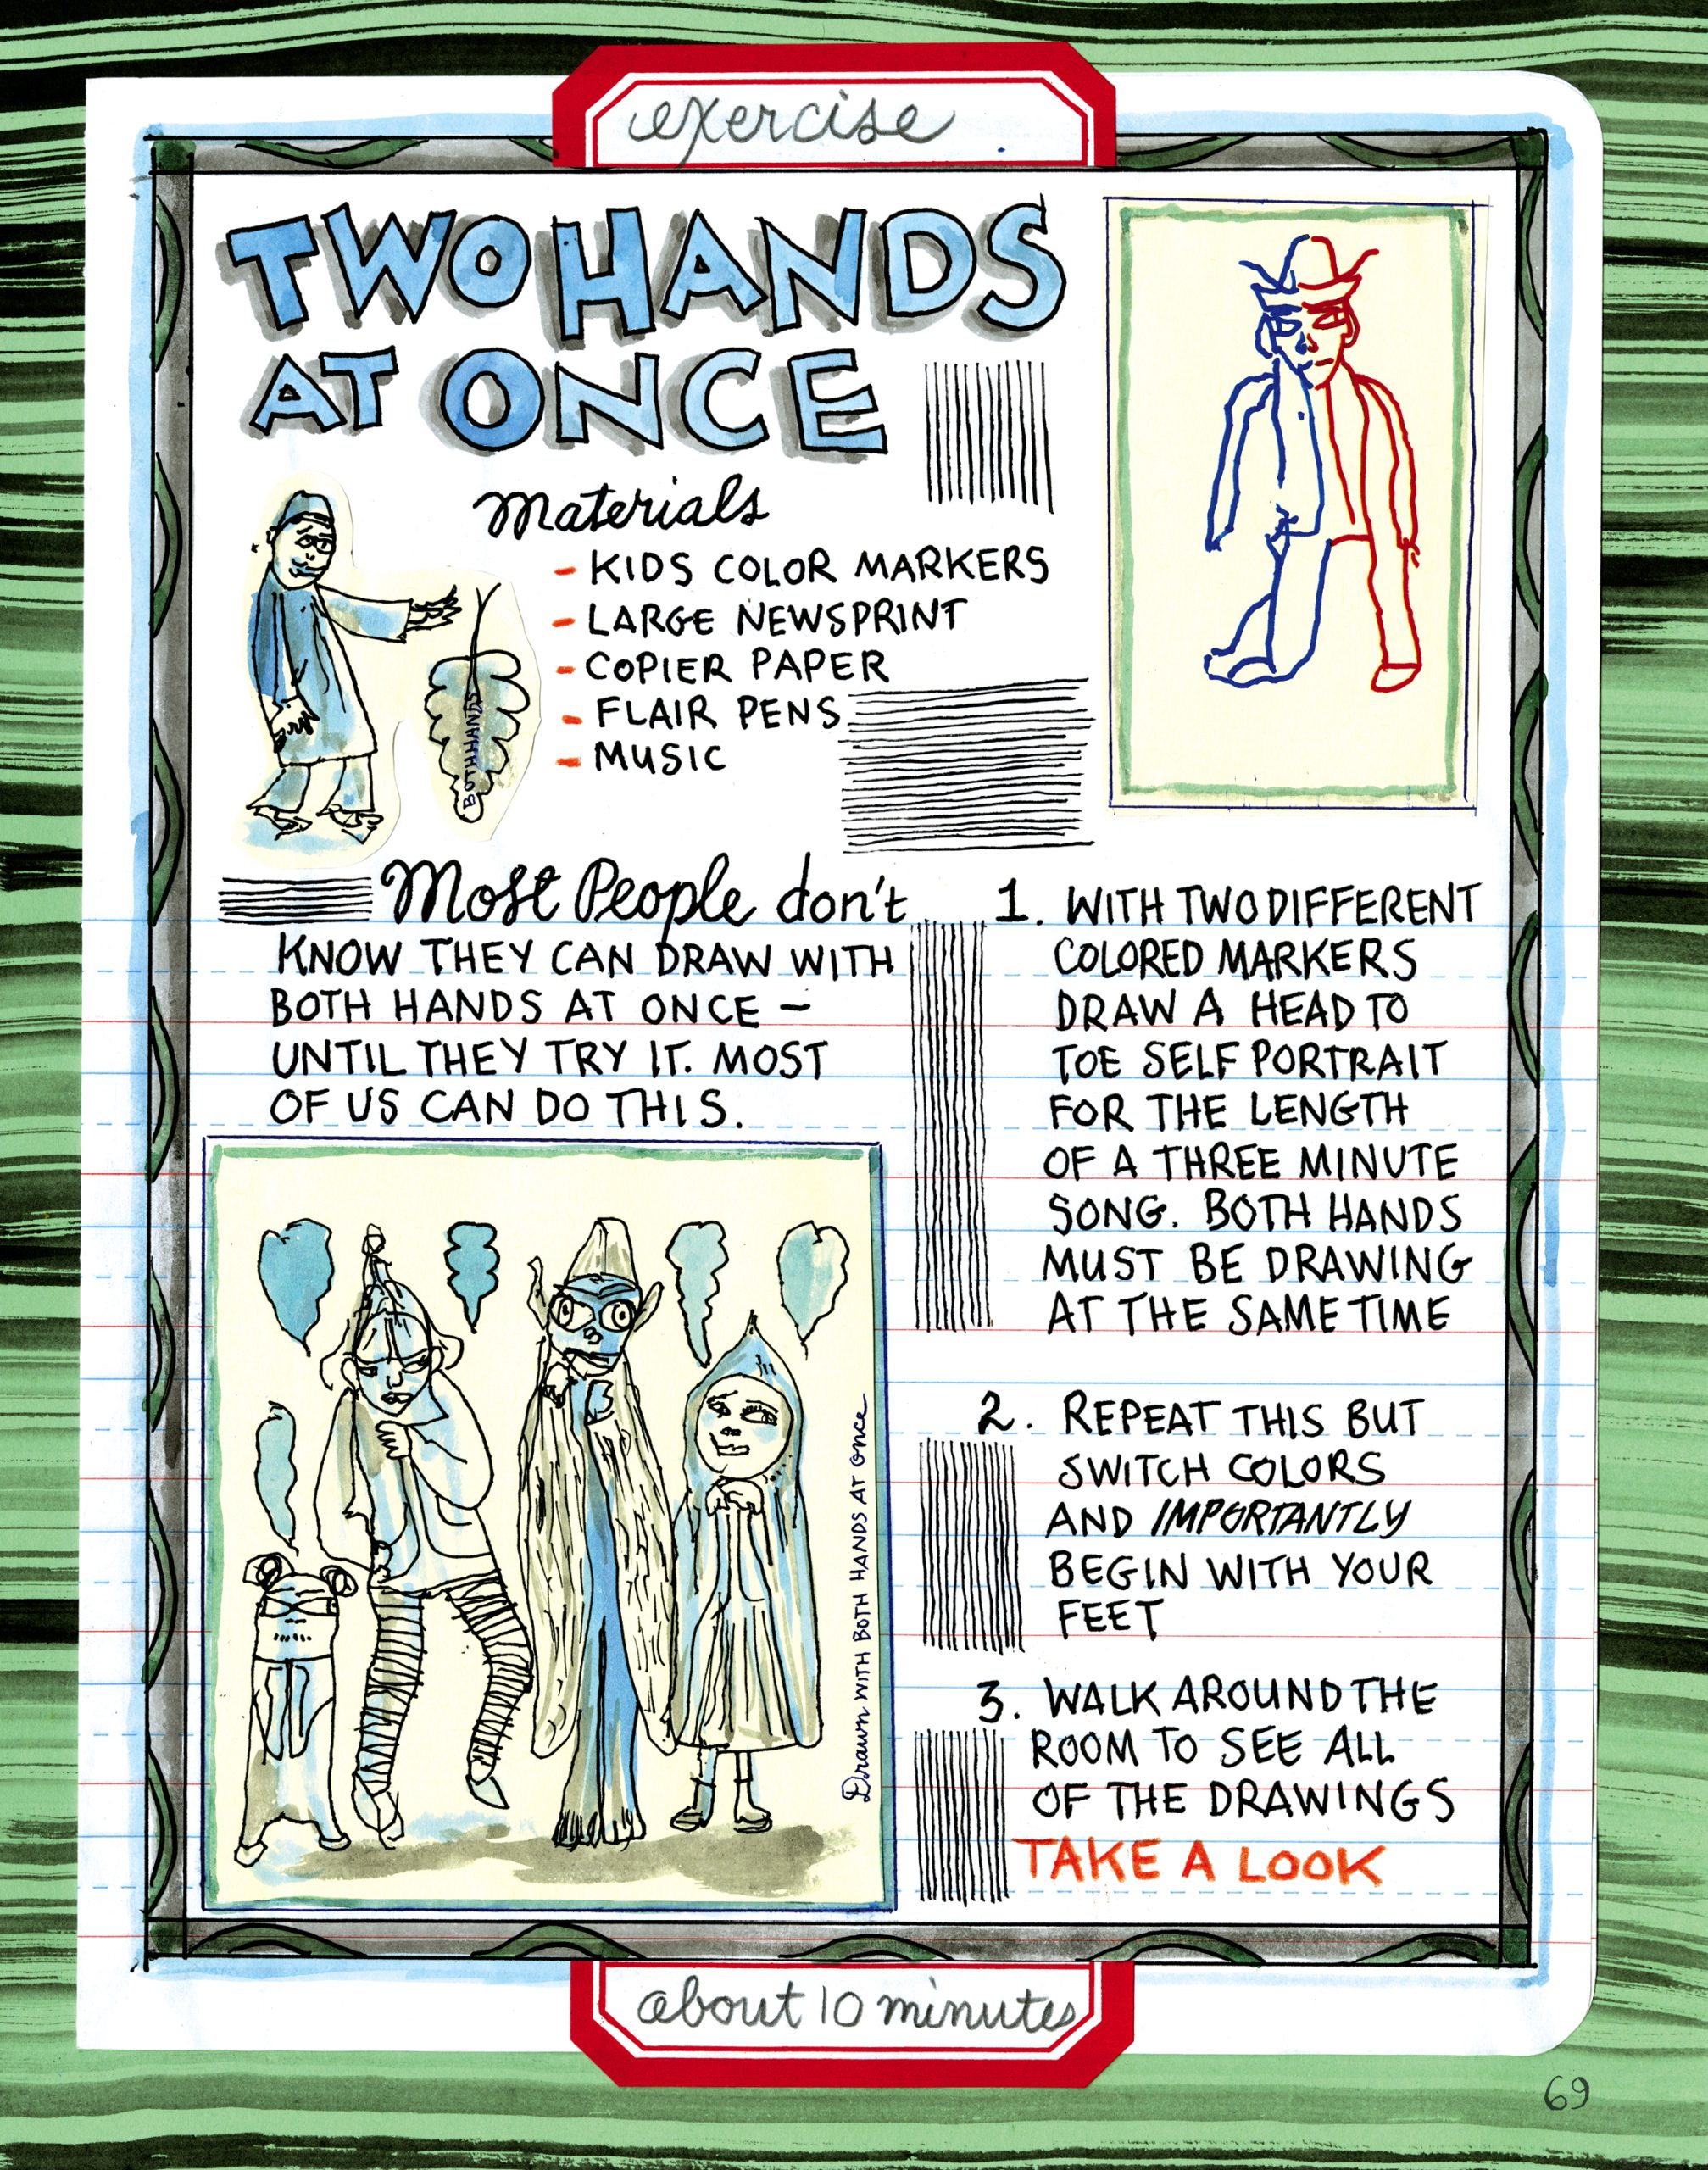 exercise
TWO HANDS
AT ONCE
Materials
- KIDS COLOR MARKERS
- LARGE NEWSPRINT
- COPIER PAPER
- FLAIR PENS
- MUSIC
BOTH HANDS
Most People don't
KNOW THEY CAN DRAW WITH
BOTH HANDS AT ONCE -
UNTIL THEY TRY IT. MOST
OF US CAN DO THIS.
Drawn WITH BOTH HANDS AT Once
1. WITH TWO DIFFERENT
COLORED MARKERS
DRAW A HEAD TO
TOE SELF PORTRAIT
FOR THE LENGTH
OF A THREE MINUTE
SONG. BOTH HANDS
MUST BE DRAWING
AT THE SAME TIME
2. REPEAT THIS BUT
SWITCH COLORS
AND IMPORTANTLY
BEGIN WITH YOUR
FEET
3. WALK AROUND THE
ROOM TO SEE ALL
OF THE DRAWINGS
TAKE A LOOK
about 10 minutes
69